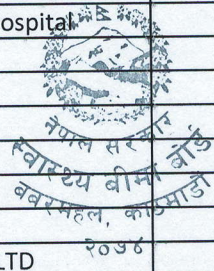 ospital
नेपाल सरकार
स्वास्थ्य बीमा बोर्ड
बबरमहल, काठमाडौं
२०७४
LTD